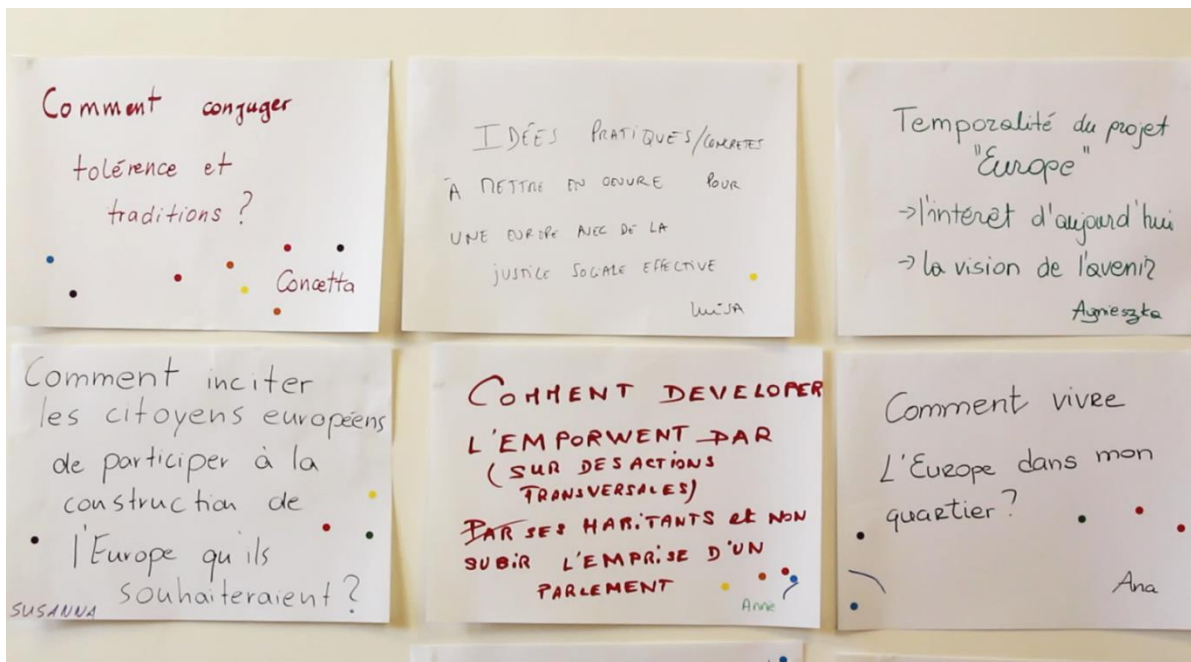 Comment conjuger
tolérence et
traditions ?
Concetta
IDÉES PRATIQUES/CONCRETES
À METTRE EN OEUVRE POUR
UNE EUROPE AVEC DE LA
JUSTICE SOCIALE EFFECTIVE
LUISA
Temporalité du projet
"Europe"
→ l'intérêt d'aujourd'hui
→ la vision de l'avenir
Agnieszka
Comment inciter
les citoyens européens
de participer à la
construction de
l'Europe qu'ils
souhaiteraient ?
SUSANNA
COMMENT DEVELOPER
L'EMPORWENT PAR
(SUR DES ACTIONS
TRANSVERSALES)
PAR SES HABITANTS et NON
SUBIR L'EMPRISE D'UN
PARLEMENT
Annie
Comment vivre
L'Europe dans mon
quartier ?
Ana